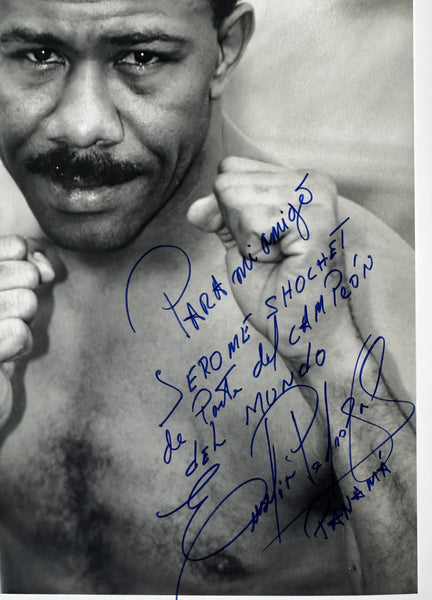 PARA mi amigo
SEROME SHOCHET
de Parte del CAMPEÓN
DEL MUNDO
Eusebio Pedroza
PANAMÁ